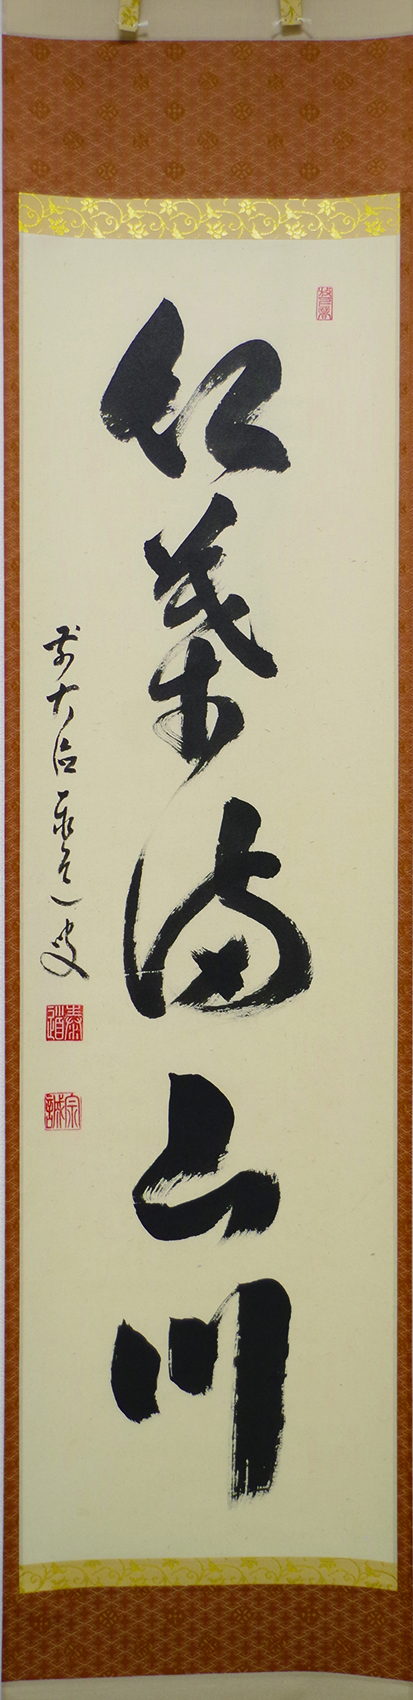 紅葉満山川
前大徳泰道叟
泰道
宗誠